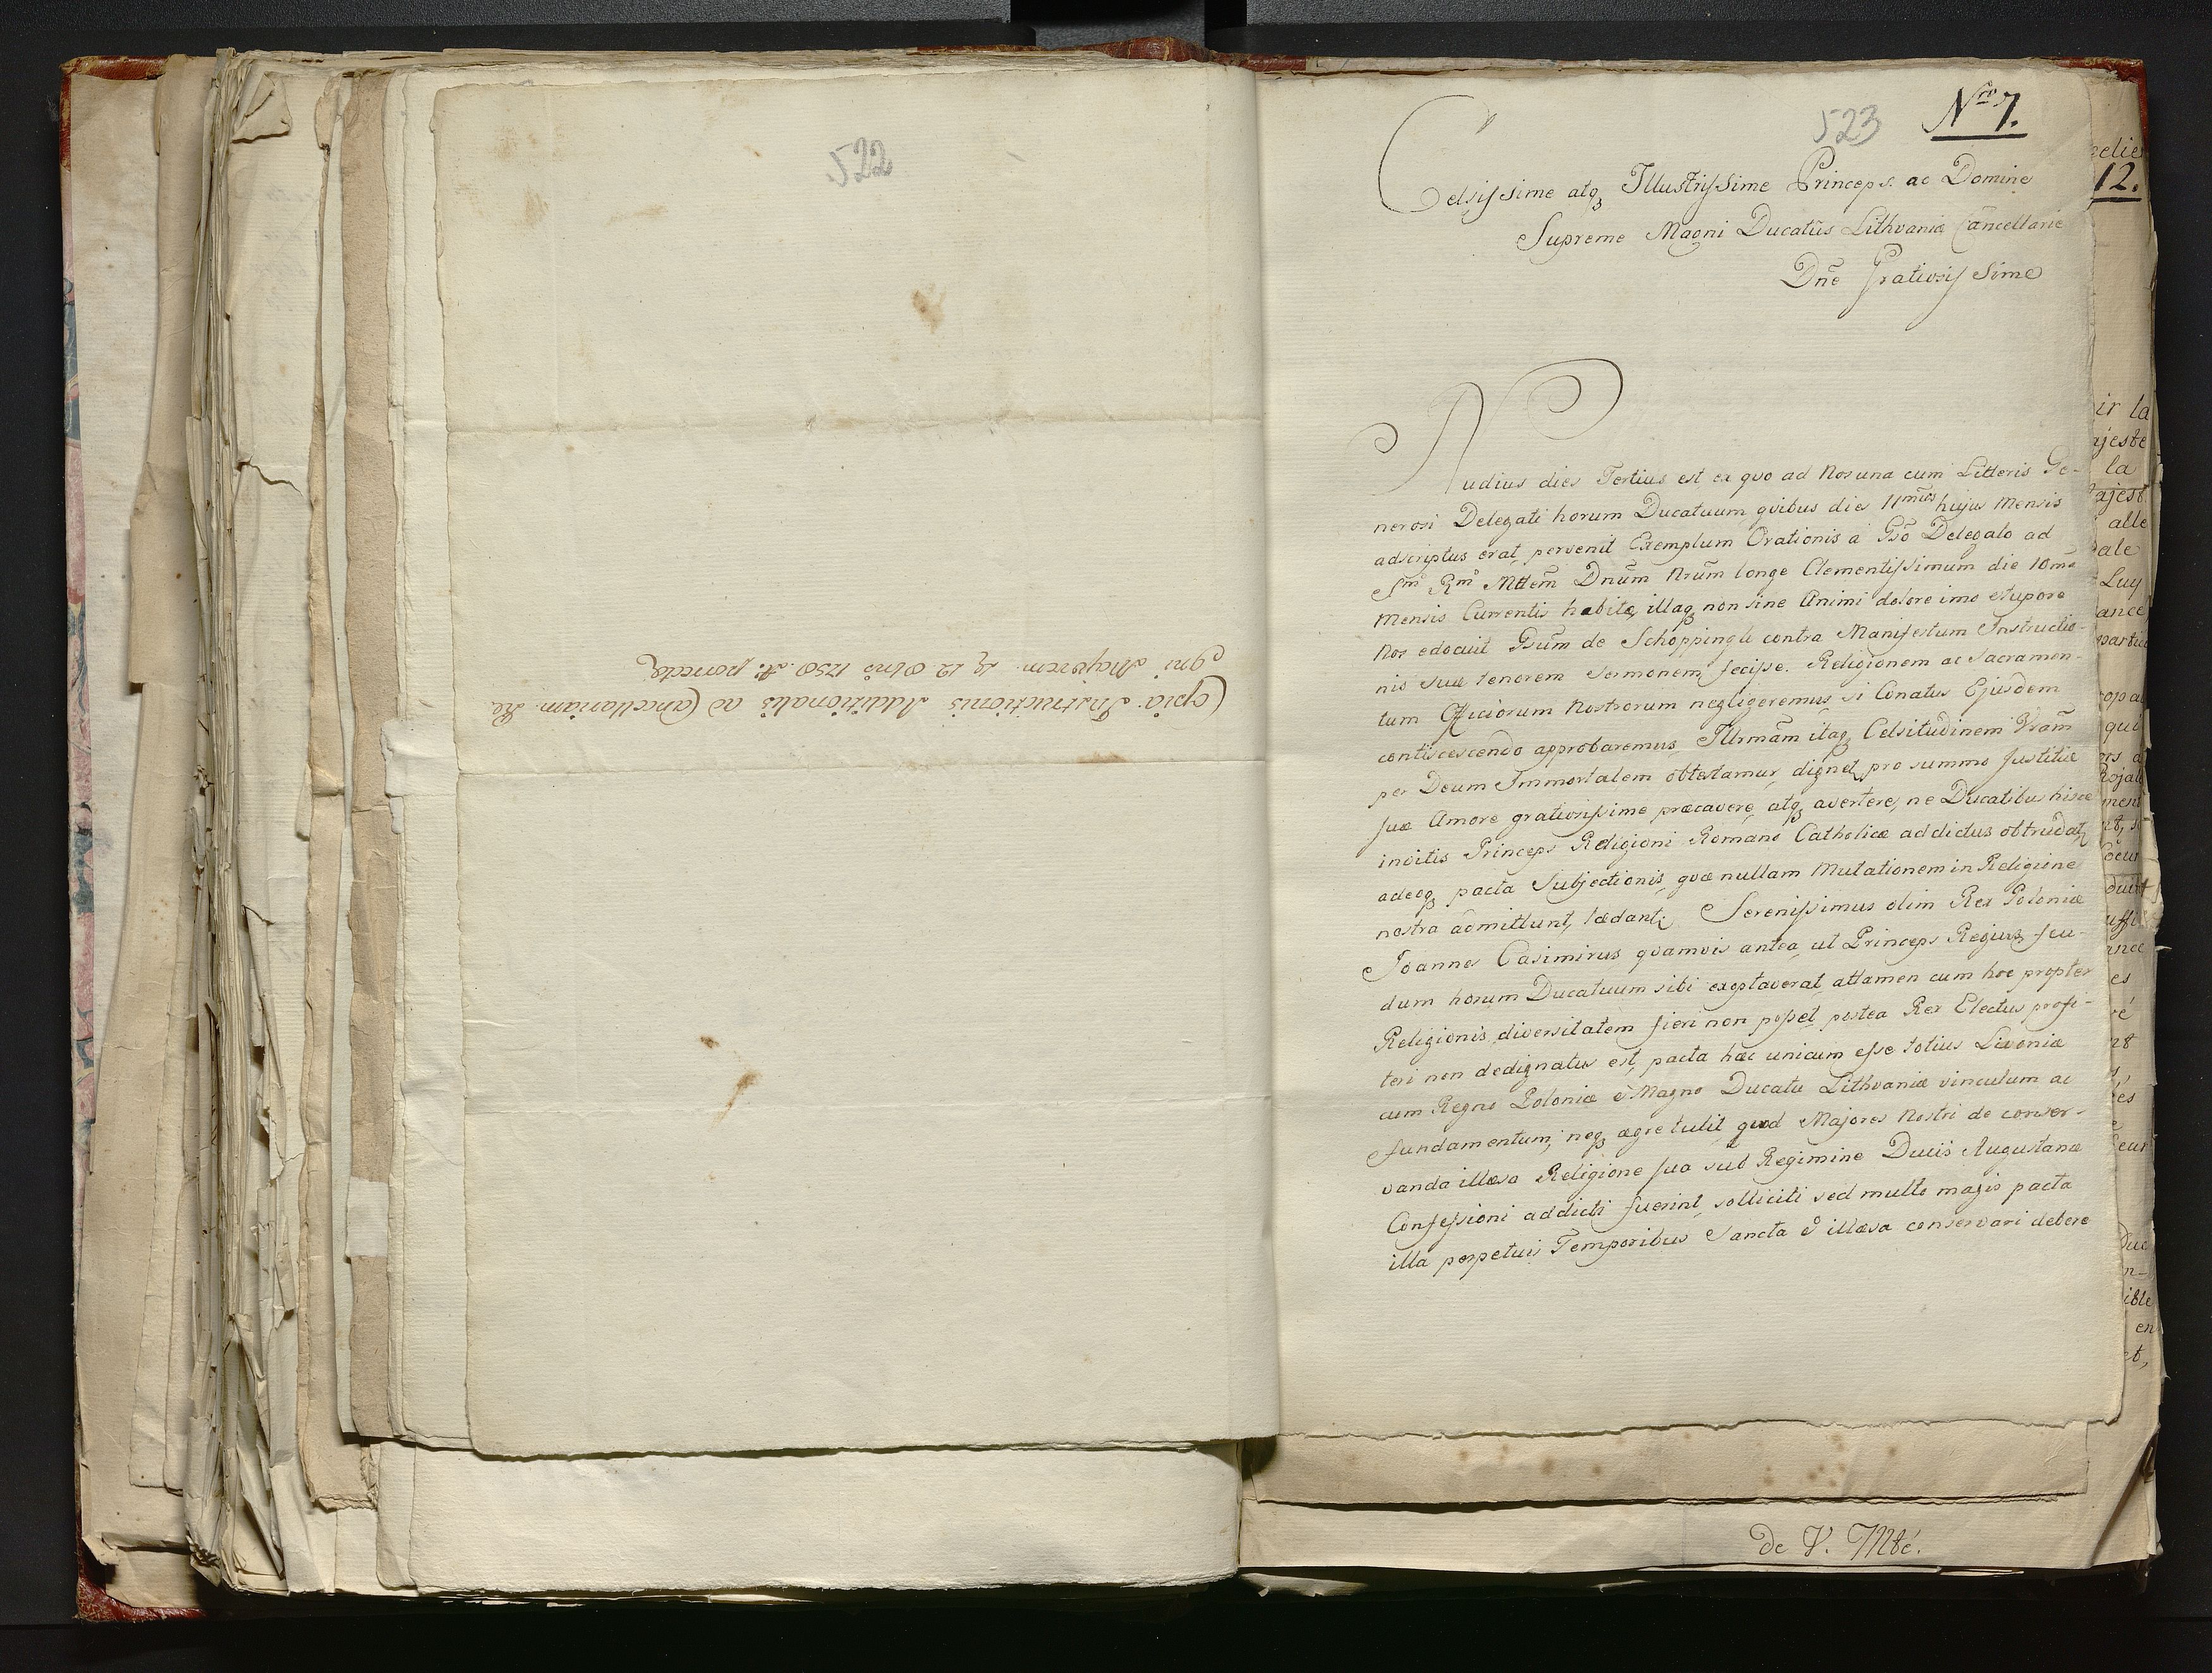 522
Copia Instructionis Additionalis ad Cancellariam Re
gni Majorem. d. 12 Octris 1750. A. porrectæ
523
Nro 7.
Celsissime atqȝ Illustrissime Princeps ac Domine
Supreme Magni Ducatûs Lithvaniæ Cancellarie
Dn̄e Gratiosissime
Nudius dies Tertius est ex qvo ad Nos una cum Litteris Ge-
nerosi Delegati horum Ducatuum, qvibus dies 11mus hujus Mensis
adscriptus erat, pervenit Exemplum Orationis à Gso Delegato ad
Smo Rmo Mttem Dnum Nrum longe Clementissimum die 10mo
Mensis Currentis habitæ, illaqȝ non sine Animi dolore imo stupore
Nos edocuit Gsum de Schoppingk contra Manifestum Instructio-
nis suæ tenorem Sermonem fecisse. Religionem ac Sacramen-
tum Officiorum Nostrorum negligeremus, si Conatus Ejusdem
conticescendo approbaremus, Illrmam itaqȝ Celsitudinem Vram
per Deum Immortalem obtestamur, dignet, pro summo Justitiæ
suæ Amore gratiosissime præcavere, atqȝ avertere, ne Ducatibus hisce
invitis Princeps Religioni Romano Catholicæ addictus obtrudat,
adeoqȝ pacta Subjectionis, qvæ nullam Mutationem in Religione
nostra admittunt, lædant. Serenissimus olim Rex Poloniæ
Joannes Casimirus qvamvis antea, ut Princeps Regius, feu-
dum horum Ducatuum sibi exoptaverat, attamen cum hoc propter
Religionis diversitatem fieri non posset, postea Rex Electus profi-
teri non dedignatus est, pacta hæc unicum esse totius Livoniæ
cum Regno Poloniæ & Magno Ducatu Lithvaniæ vinculum ac
fundamentum; neqȝ ægre tulit, qvod Majores Nostri de conser-
vanda illæsa Religione sua sub Regimine Ducis Augustanæ
Confessioni addicti fuerint solliciti, sed multo magis pacta
illa perpetuis Temporibus Sancta & illæsa conservari debere
12.
ir la
ajeste
la
ajest
alle
Luy
ance
qui
ment
es
en
de V. Mté.